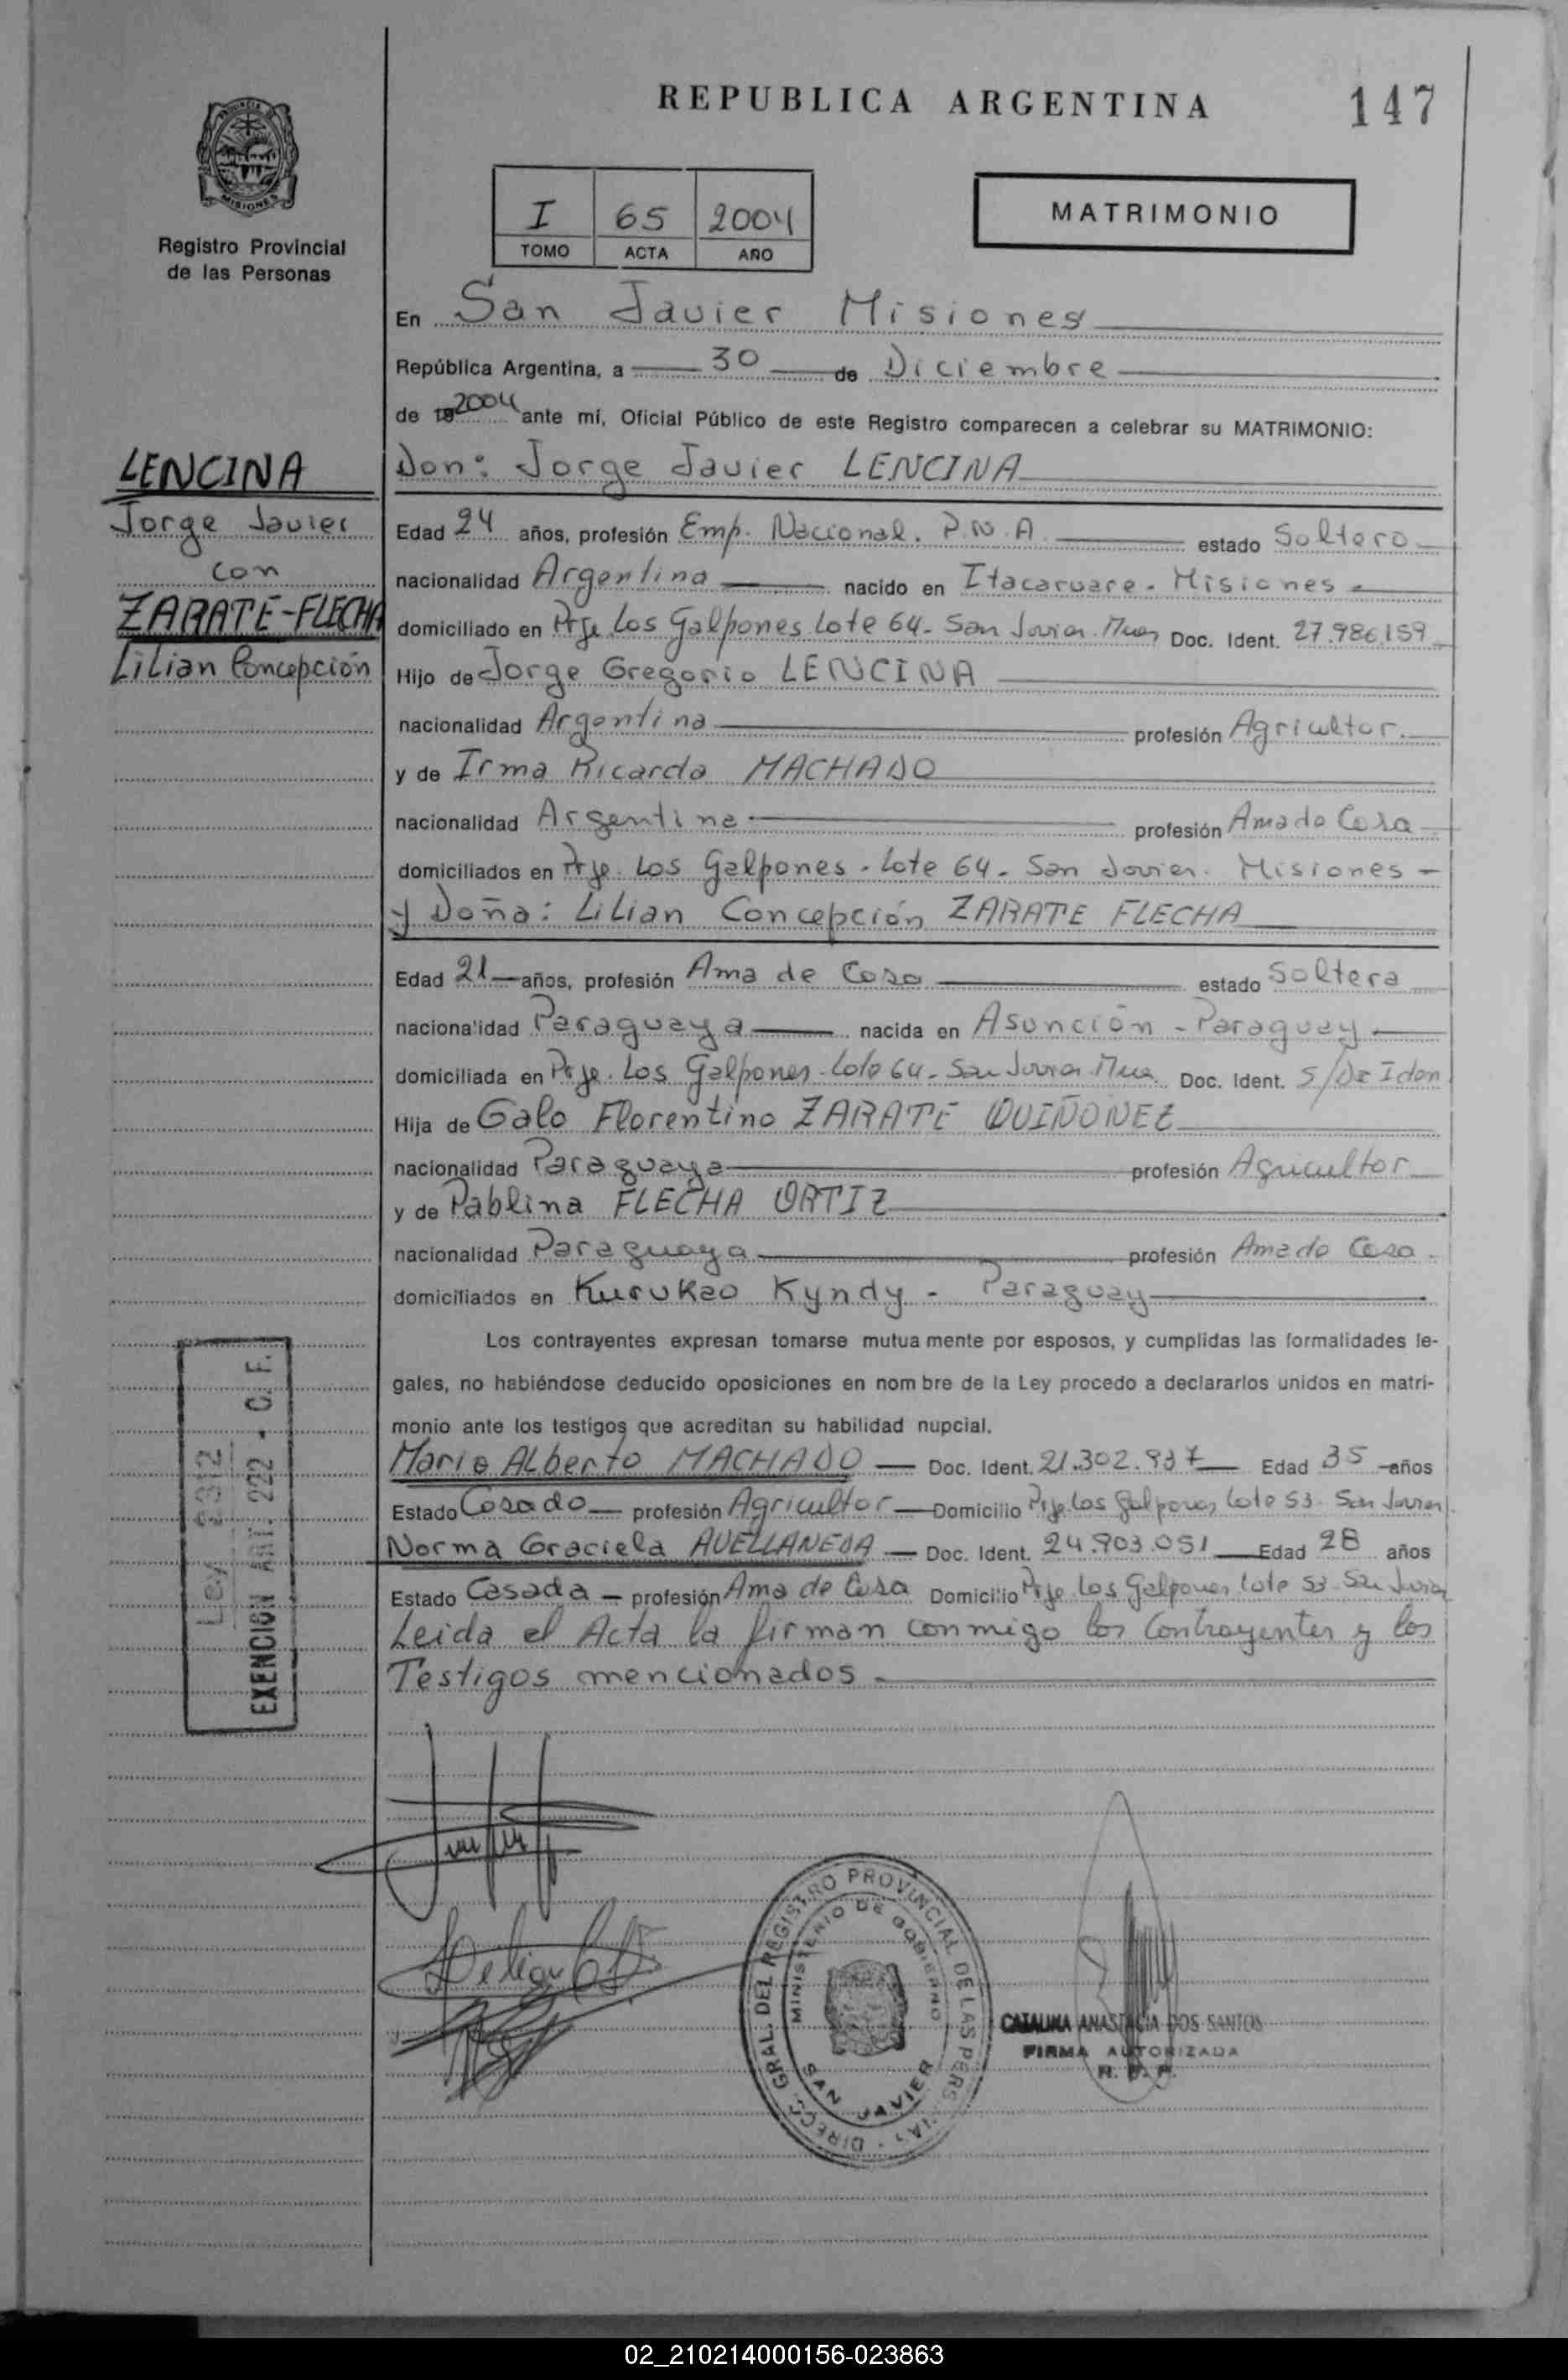 REPUBLICA ARGENTINA
147
PROVINCIA
MISIONES
Registro Provincial
de las Personas
I 65 2004
TOMO ACTA AÑO
MATRIMONIO
En San Javier Misiones
República Argentina, a 30 de Diciembre
de 19 2004 ante mí, Oficial Público de este Registro comparecen a celebrar su MATRIMONIO:
LENCINA
Jorge Javier
con
ZARATE-FLECHA
Lilian Concepción
Don: Jorge Javier LENCINA
Edad 24 años, profesión Emp. Nacional. P.N.A estado Soltero
nacionalidad Argentina nacido en Itacaruare - Misiones
domiciliado en Pje Los Galpones Lote 64 - San Javier Mnes Doc. Ident. 27.986.159
Hijo de Jorge Gregorio LENCINA
nacionalidad Argentina profesión Agricultor
y de Irma Ricarda MACHADO
nacionalidad Argentina profesión Ama de Casa
domiciliados en Pje. Los Galpones - Lote 64 - San Javier. Misiones -
y Doña: Lilian Concepción ZARATE FLECHA
Edad 21 años, profesión Ama de Casa estado Soltera
nacionalidad Paraguaya nacida en Asunción - Paraguay
domiciliada en Pje. Los Galpones Lote 64 - San Javier Mnes Doc. Ident. S/
Hija de Galo Florentino ZARATE QUIÑONEZ
nacionalidad Paraguaya profesión Agricultor
y de Pablina FLECHA ORTIZ
nacionalidad Paraguaya profesión Ama de Casa
domiciliados en Kurukao Kyndy - Paraguay
Los contrayentes expresan tomarse mutua mente por esposos, y cumplidas las formalidades le-
gales, no habiéndose deducido oposiciones en nom bre de la Ley procedo a declararlos unidos en matri-
monio ante los testigos que acreditan su habilidad nupcial.
Mario Alberto MACHADO Doc. Ident. 21.302.937 Edad 35 años
Estado Casado profesión Agricultor Domicilio Pje. Los Galpones Lote 53. San Javier
Norma Graciela AVELLANEDA Doc. Ident. 24.903.051 Edad 28 años
Estado Casada profesión Ama de Casa Domicilio Pje Los Galpones Lote 53. San Javier
Leida el Acta la firman conmigo los Contrayentes y los
Testigos mencionados
Ley 2312
EXENCION ART. 222 - C. F.
DIRECC. GRAL. DEL REGISTRO PROVINCIAL DE LAS PERS
MINISTERIO DE GOBIERNO
SAN JAVIER
CATALINA ANASTACIA DOS SANTOS
FIRMA AUTORIZADA
R. P. P.
02_210214000156-023863